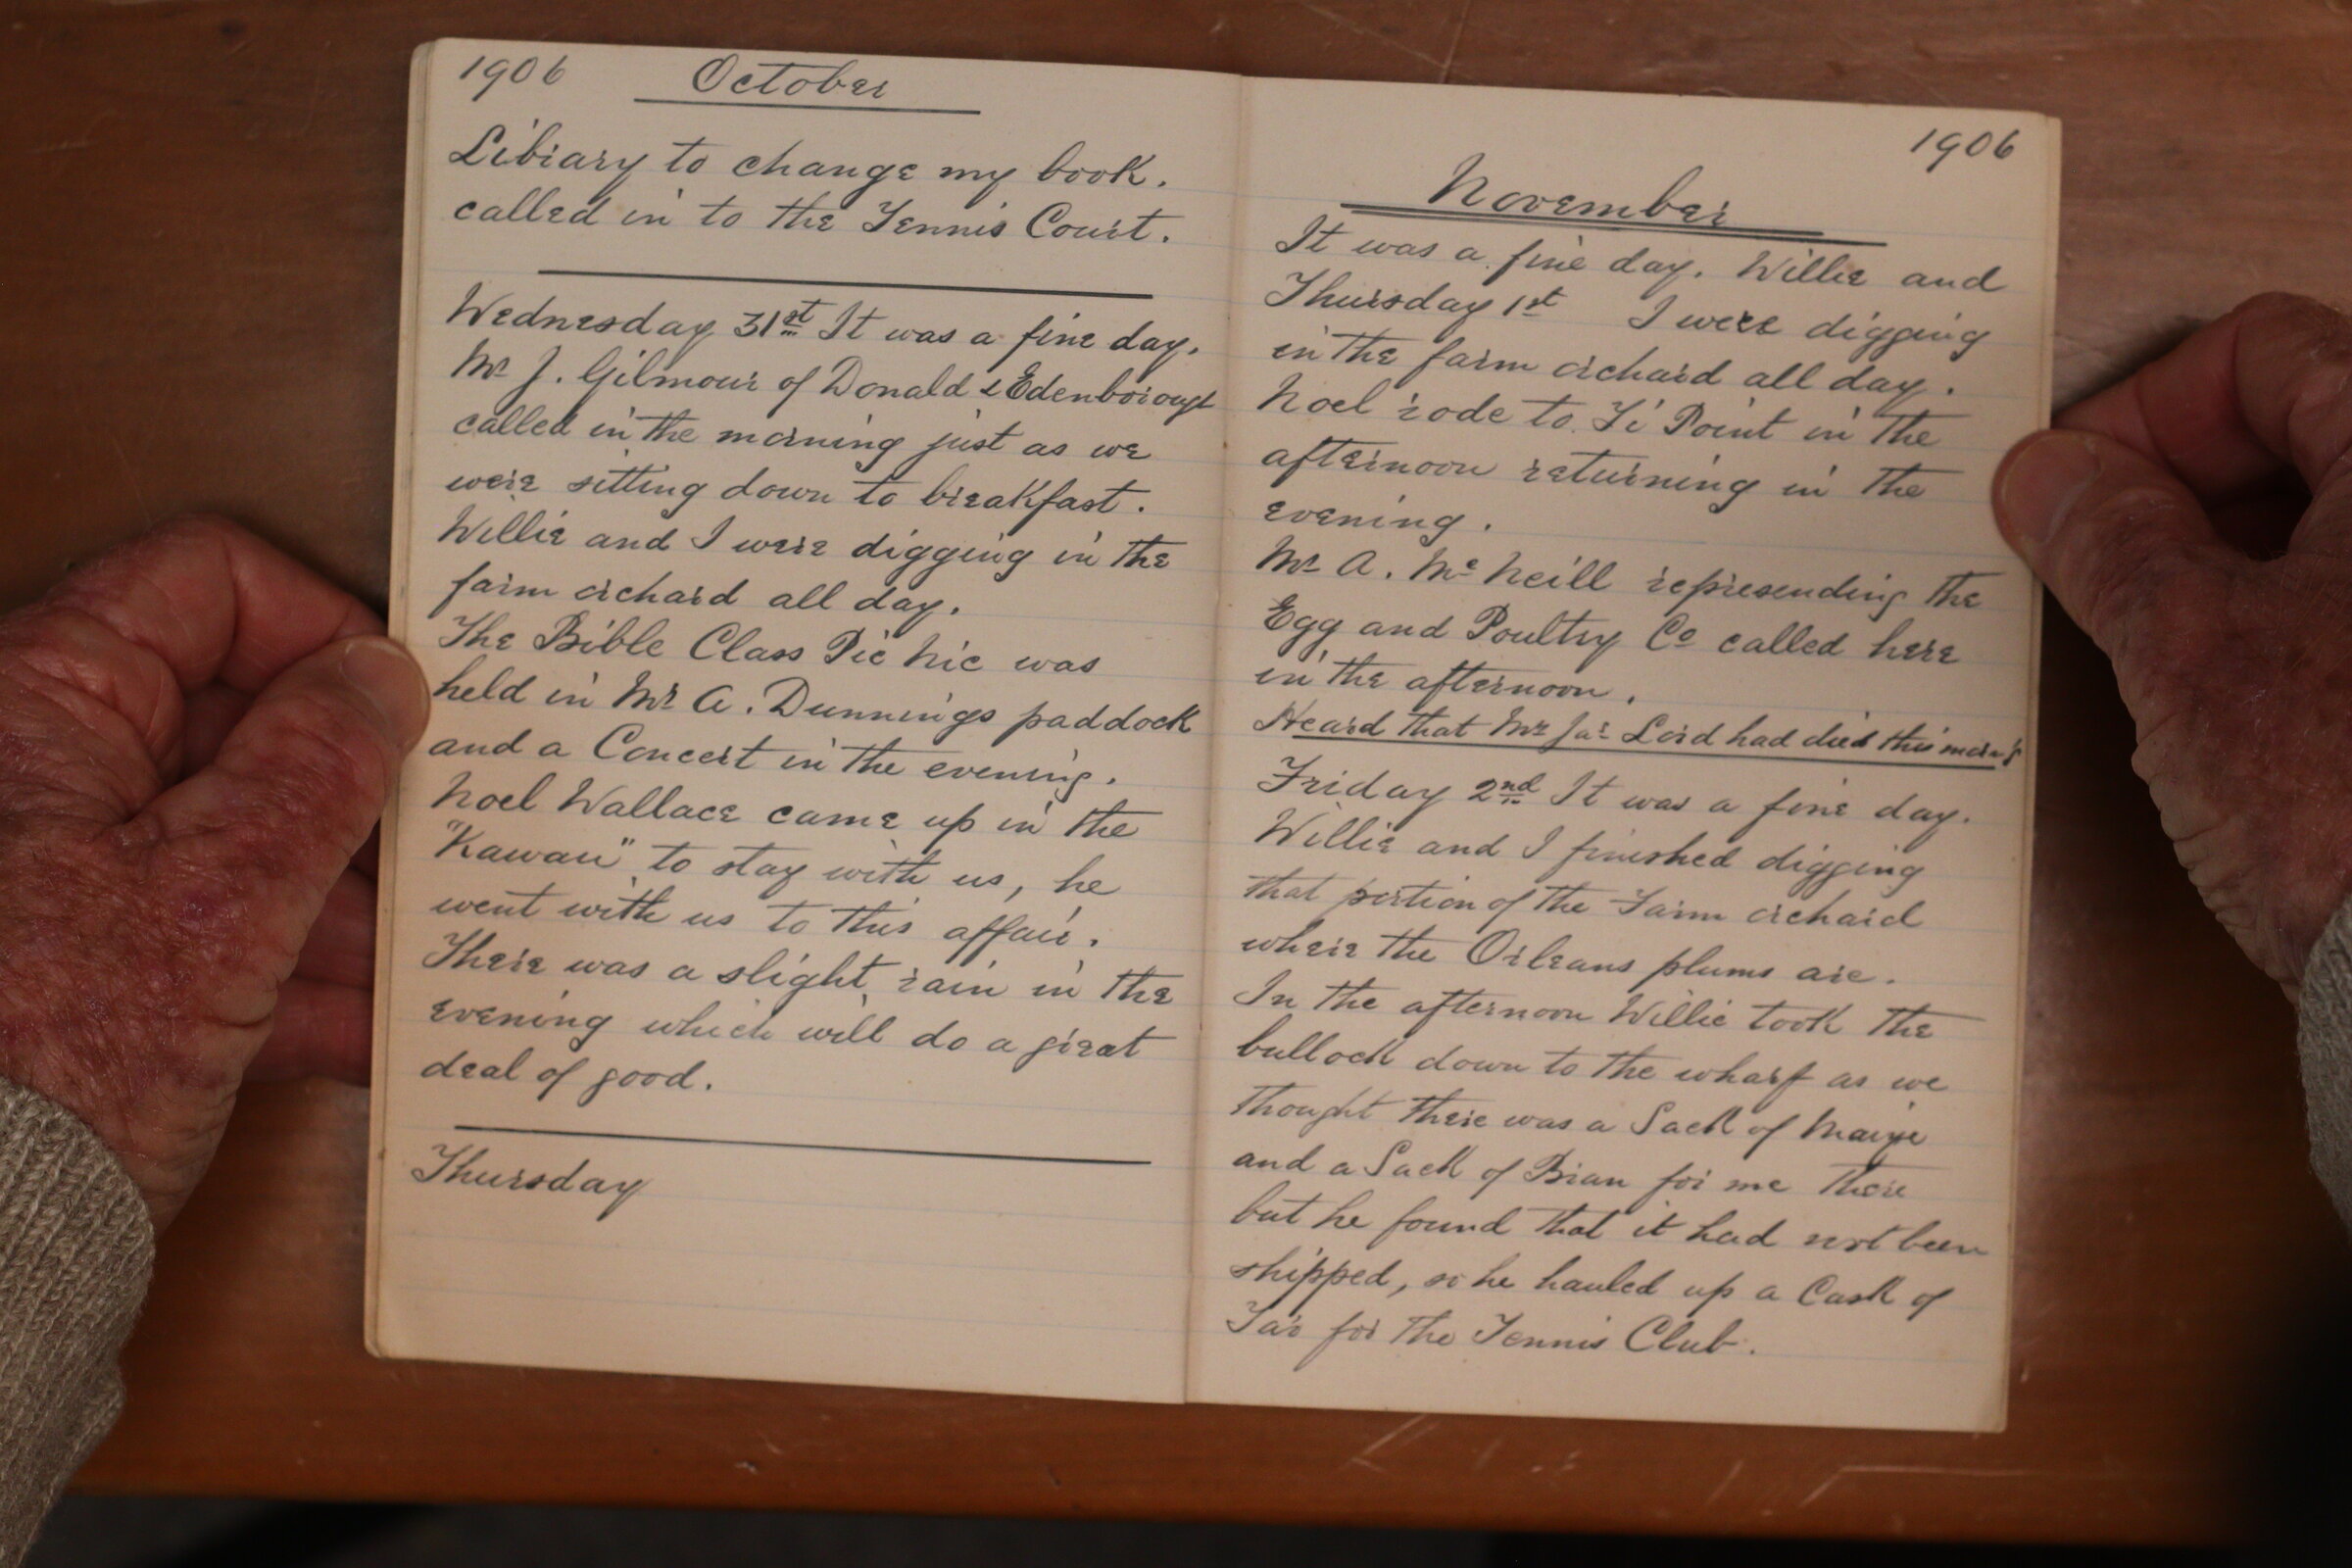 1906 October
Library to change my book.
called in to the Tennis Court.
Wednesday 31st It was a fine day.
Mr J. Gilmour of Donald & Edenborough
called in the morning just as we
were sitting down to breakfast.
Willie and I were digging in the
farm orchard all day.
The Bible Class Pic Nic was
held in Mr A. Dunnings paddock
and a Concert in the evening.
Noel Wallace came up in the
"Kawau" to stay with us, he
went with us to this affair.
There was a slight rain in the
evening which will do a great
deal of good.
Thursday
1906
November
It was a fine day. Willie and
Thursday 1st I were digging
in the farm orchard all day.
Noel rode to Ti Point in the
afternoon returning in the
evening.
Mr A. McNeill represending the
Egg and Poultry Co called here
in the afternoon.
Heard that Mr Jas Lord had died this morng
Friday 2nd It was a fine day.
Willie and I finished digging
that portion of the Farm orchard
where the Orleans plums are.
In the afternoon Willie took the
bullock down to the wharf as we
thought there was a Sack of Maize
and a Sack of Bran for me there
but he found that it had not been
shipped, so he hauled up a Cask of
Tar for the Tennis Club.